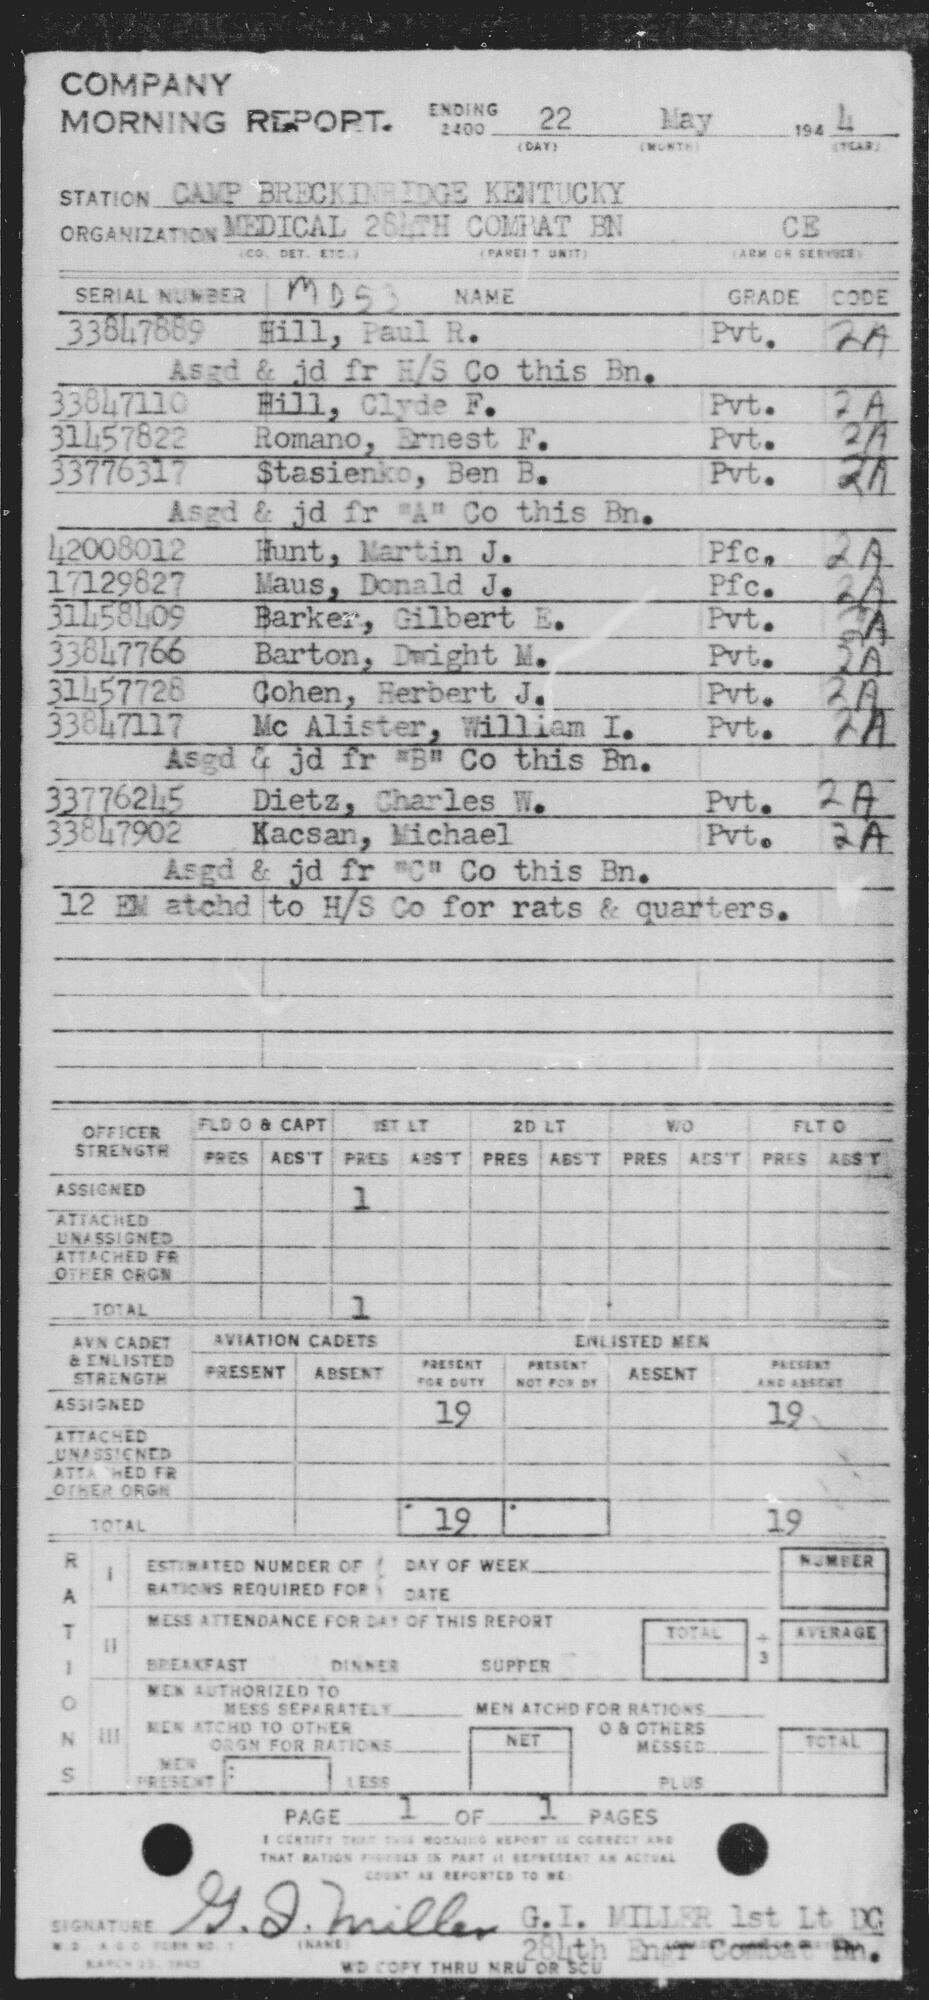 COMPANY
MORNING REPORT. ENDING 2400 22 May 194 4
(DAY) (MONTH) (YEAR)
STATION CAMP BRECKINRIDGE KENTUCKY
ORGANIZATION MEDICAL 284TH COMBAT BN CE
(CO. DET. ETC.) (PARENT UNIT) (ARM OR SERVICE)
SERIAL NUMBER MD53 NAME GRADE CODE
33847889 Hill, Paul R. Pvt. 2A
Asgd & jd fr H/S Co this Bn.
33847110 Hill, Clyde F. Pvt. 2A
31457822 Romano, Ernest F. Pvt. 2A
33776317 Stasienko, Ben B. Pvt. 2A
Asgd & jd fr "A" Co this Bn.
42008012 Hunt, Martin J. Pfc. 2A
17129827 Maus, Donald J. Pfc. 2A
31458409 Barker, Gilbert E. Pvt. 2A
33847766 Barton, Dwight M. Pvt. 2A
31457728 Cohen, Herbert J. Pvt. 2A
33847117 Mc Alister, William I. Pvt. 2A
Asgd & jd fr "B" Co this Bn.
33776245 Dietz, Charles W. Pvt. 2A
33847902 Kacsan, Michael Pvt. 2A
Asgd & jd fr "C" Co this Bn.
12 EM atchd to H/S Co for rats & quarters.
OFFICER STRENGTH FLD O & CAPT 1ST LT 2D LT W/O FLT O
PRES ABS'T PRES ABS'T PRES ABS'T PRES ABS'T PRES ABS'T
ASSIGNED 1
ATTACHED UNASSIGNED
ATTACHED FR OTHER ORGN
TOTAL 1
AVN CADET & ENLISTED STRENGTH AVIATION CADETS ENLISTED MEN
PRESENT ABSENT PRESENT FOR DUTY PRESENT NOT FOR DY ABSENT PRESENT AND ABSENT
ASSIGNED 19 19
ATTACHED UNASSIGNED
ATTACHED FR OTHER ORGN
TOTAL 19 19
RATIONS
I ESTIMATED NUMBER OF DAY OF WEEK NUMBER
RATIONS REQUIRED FOR DATE
II MESS ATTENDANCE FOR DAY OF THIS REPORT TOTAL ÷ 3 AVERAGE
BREAKFAST DINNER SUPPER
III MEN AUTHORIZED TO MESS SEPARATELY MEN ATCHD FOR RATIONS
MEN ATCHD TO OTHER ORGN FOR RATIONS NET O & OTHERS MESSED TOTAL
MEN PRESENT LESS PLUS
PAGE 1 OF 1 PAGES
I CERTIFY THAT THIS MORNING REPORT IS CORRECT AND
THAT RATION FIGURES IN PART II REPRESENT AN ACTUAL
COUNT AS REPORTED TO ME:
SIGNATURE G. I. Miller G.I. MILLER 1st Lt DC
(NAME)
284th Engr Combat Bn.
W.D. A.G.O. FORM NO. 1
MARCH 1943
WD COPY THRU NRU OR SCU